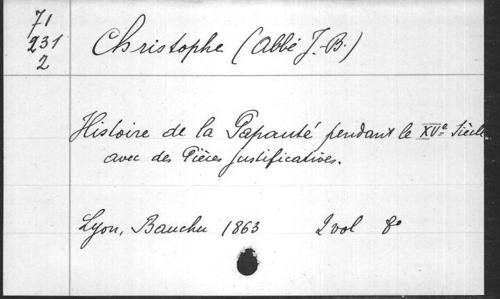 71
231
2
Christophe (Abbé J.-B.)
Histoire de la Papauté pendant le XVe Siècle
avec des Pièces justificatives.
Lyon, Bauchu 1863 2 vol 8o